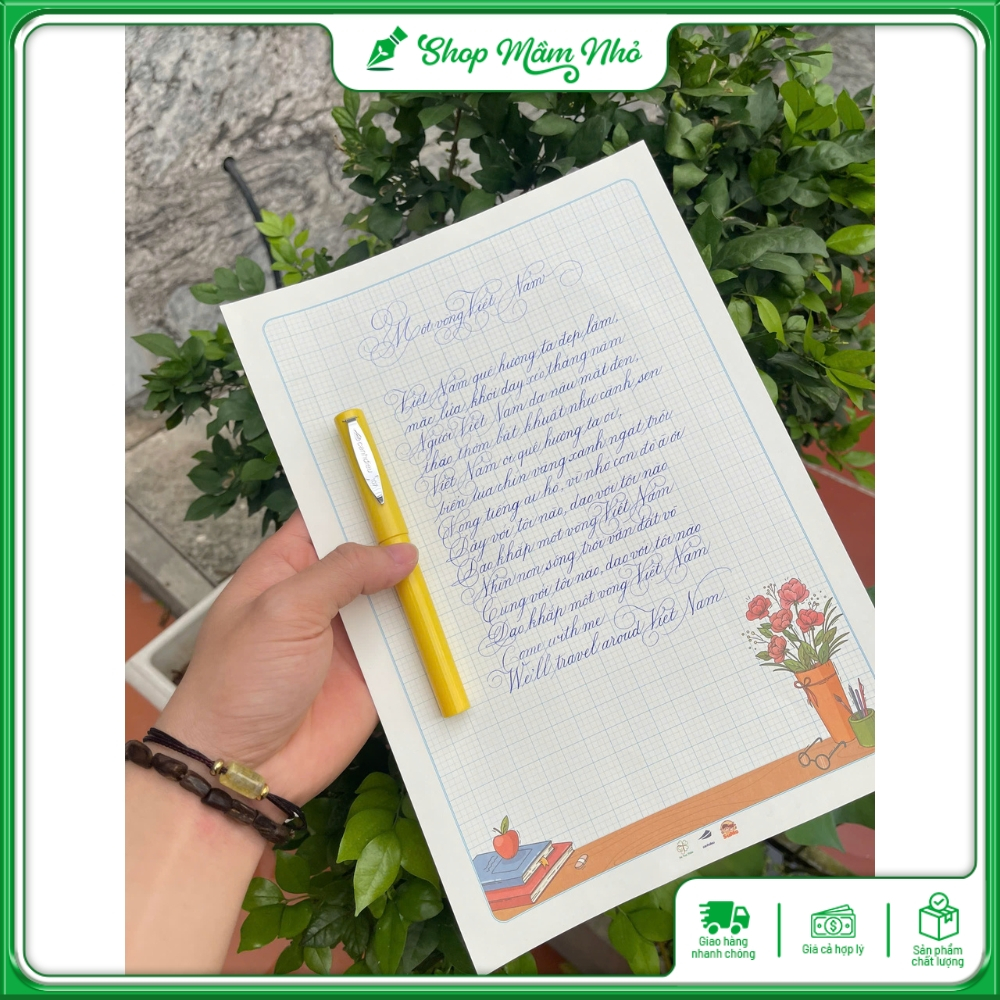 Shop Mầm Nhỏ
Một vòng Việt Nam
Việt Nam quê hương ta đẹp lắm,
mặc lửa khói dạy xéo tháng năm
Người Việt Nam da nâu mắt đen,
thảo thơm bất khuất như cánh sen
Việt Nam ơi quê hương ta ơi,
biển lúa chín vàng xanh ngát trời
Vọng tiếng ai hò: ví nhớ con đò ả ơi
Dậy với tôi nào, dạo với tôi nào
Dạo khắp một vòng Việt Nam
Nhìn non sông trời vân đất võ
Cùng với tôi nào, dạo với tôi nào
Dạo khắp một vòng Việt Nam
Come with me
We'll travel aroud Việt Nam.
Giao hàng
nhanh chóng
Giá cả hợp lý
Sản phẩm
chất lượng